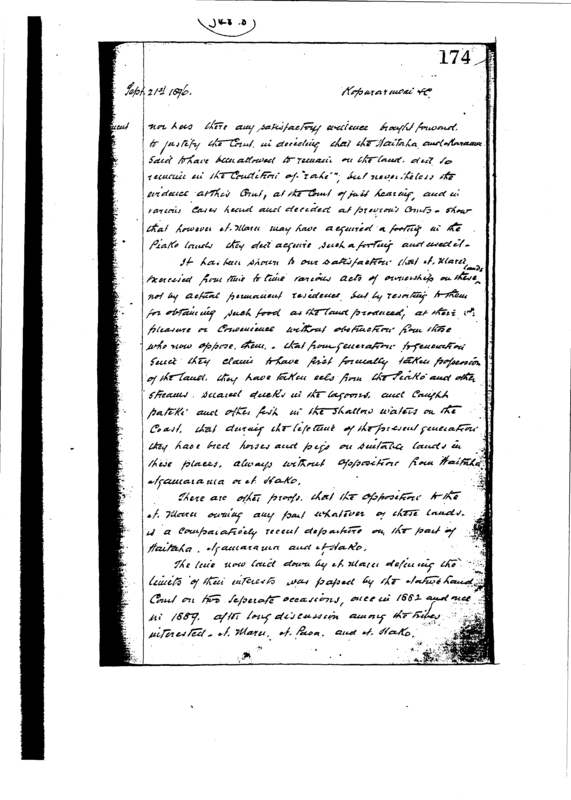 (J4-3 .0)
174
Sept 21st 1896. Koputarawai &c
nor has there any satisfactory evidence brought forward.
to justify the Court in deciding that the Waitaha and Marama
said to have been allowed to remain on the land. did so
remain in the Condition of "rahi", but nevertheless the
evidence at this Court, at the Court of first hearing, and in
various Cases heard and decided at previous Courts - show
that however N. Maru may have acquired a footing in the
Piako lands they did acquire such a footing and used it -
It has been shown to our satisfaction that N. Maru
exercised from time to time various acts of ownership on these lands,
not by actual permanent residence, but by resorting to them
for obtaining such food as the land produced, at their
pleasure or Convenience without obstruction from those
who now oppose them. - that from generation to generation
since they claim to have first formally taken possession
of the land. they have taken eels from the Piako and other
streams, snared ducks in the lagoons, and Caught
patiki and other fish in the shallow waters on the
Coast, that during the lifetime of the present generation
they have bred horses and pigs on suitable lands in
these places, always without opposition from Waitaha
Ngamarama or N. Hako.
There are other proofs. that the opposition to the
N. Maru owning any part whatever of these lands.
is a comparatively recent departure on the part of
Waitaha, Ngamarama and N Hako.
The line now laid down by N. Maru defining the
limits of their interests was passed by the Native Land
Court on two separate occasions, once in 1882 and once
in 1889. after long discussion among the tribes
interested - N. Maru, N. Paoa, and N. Hako.